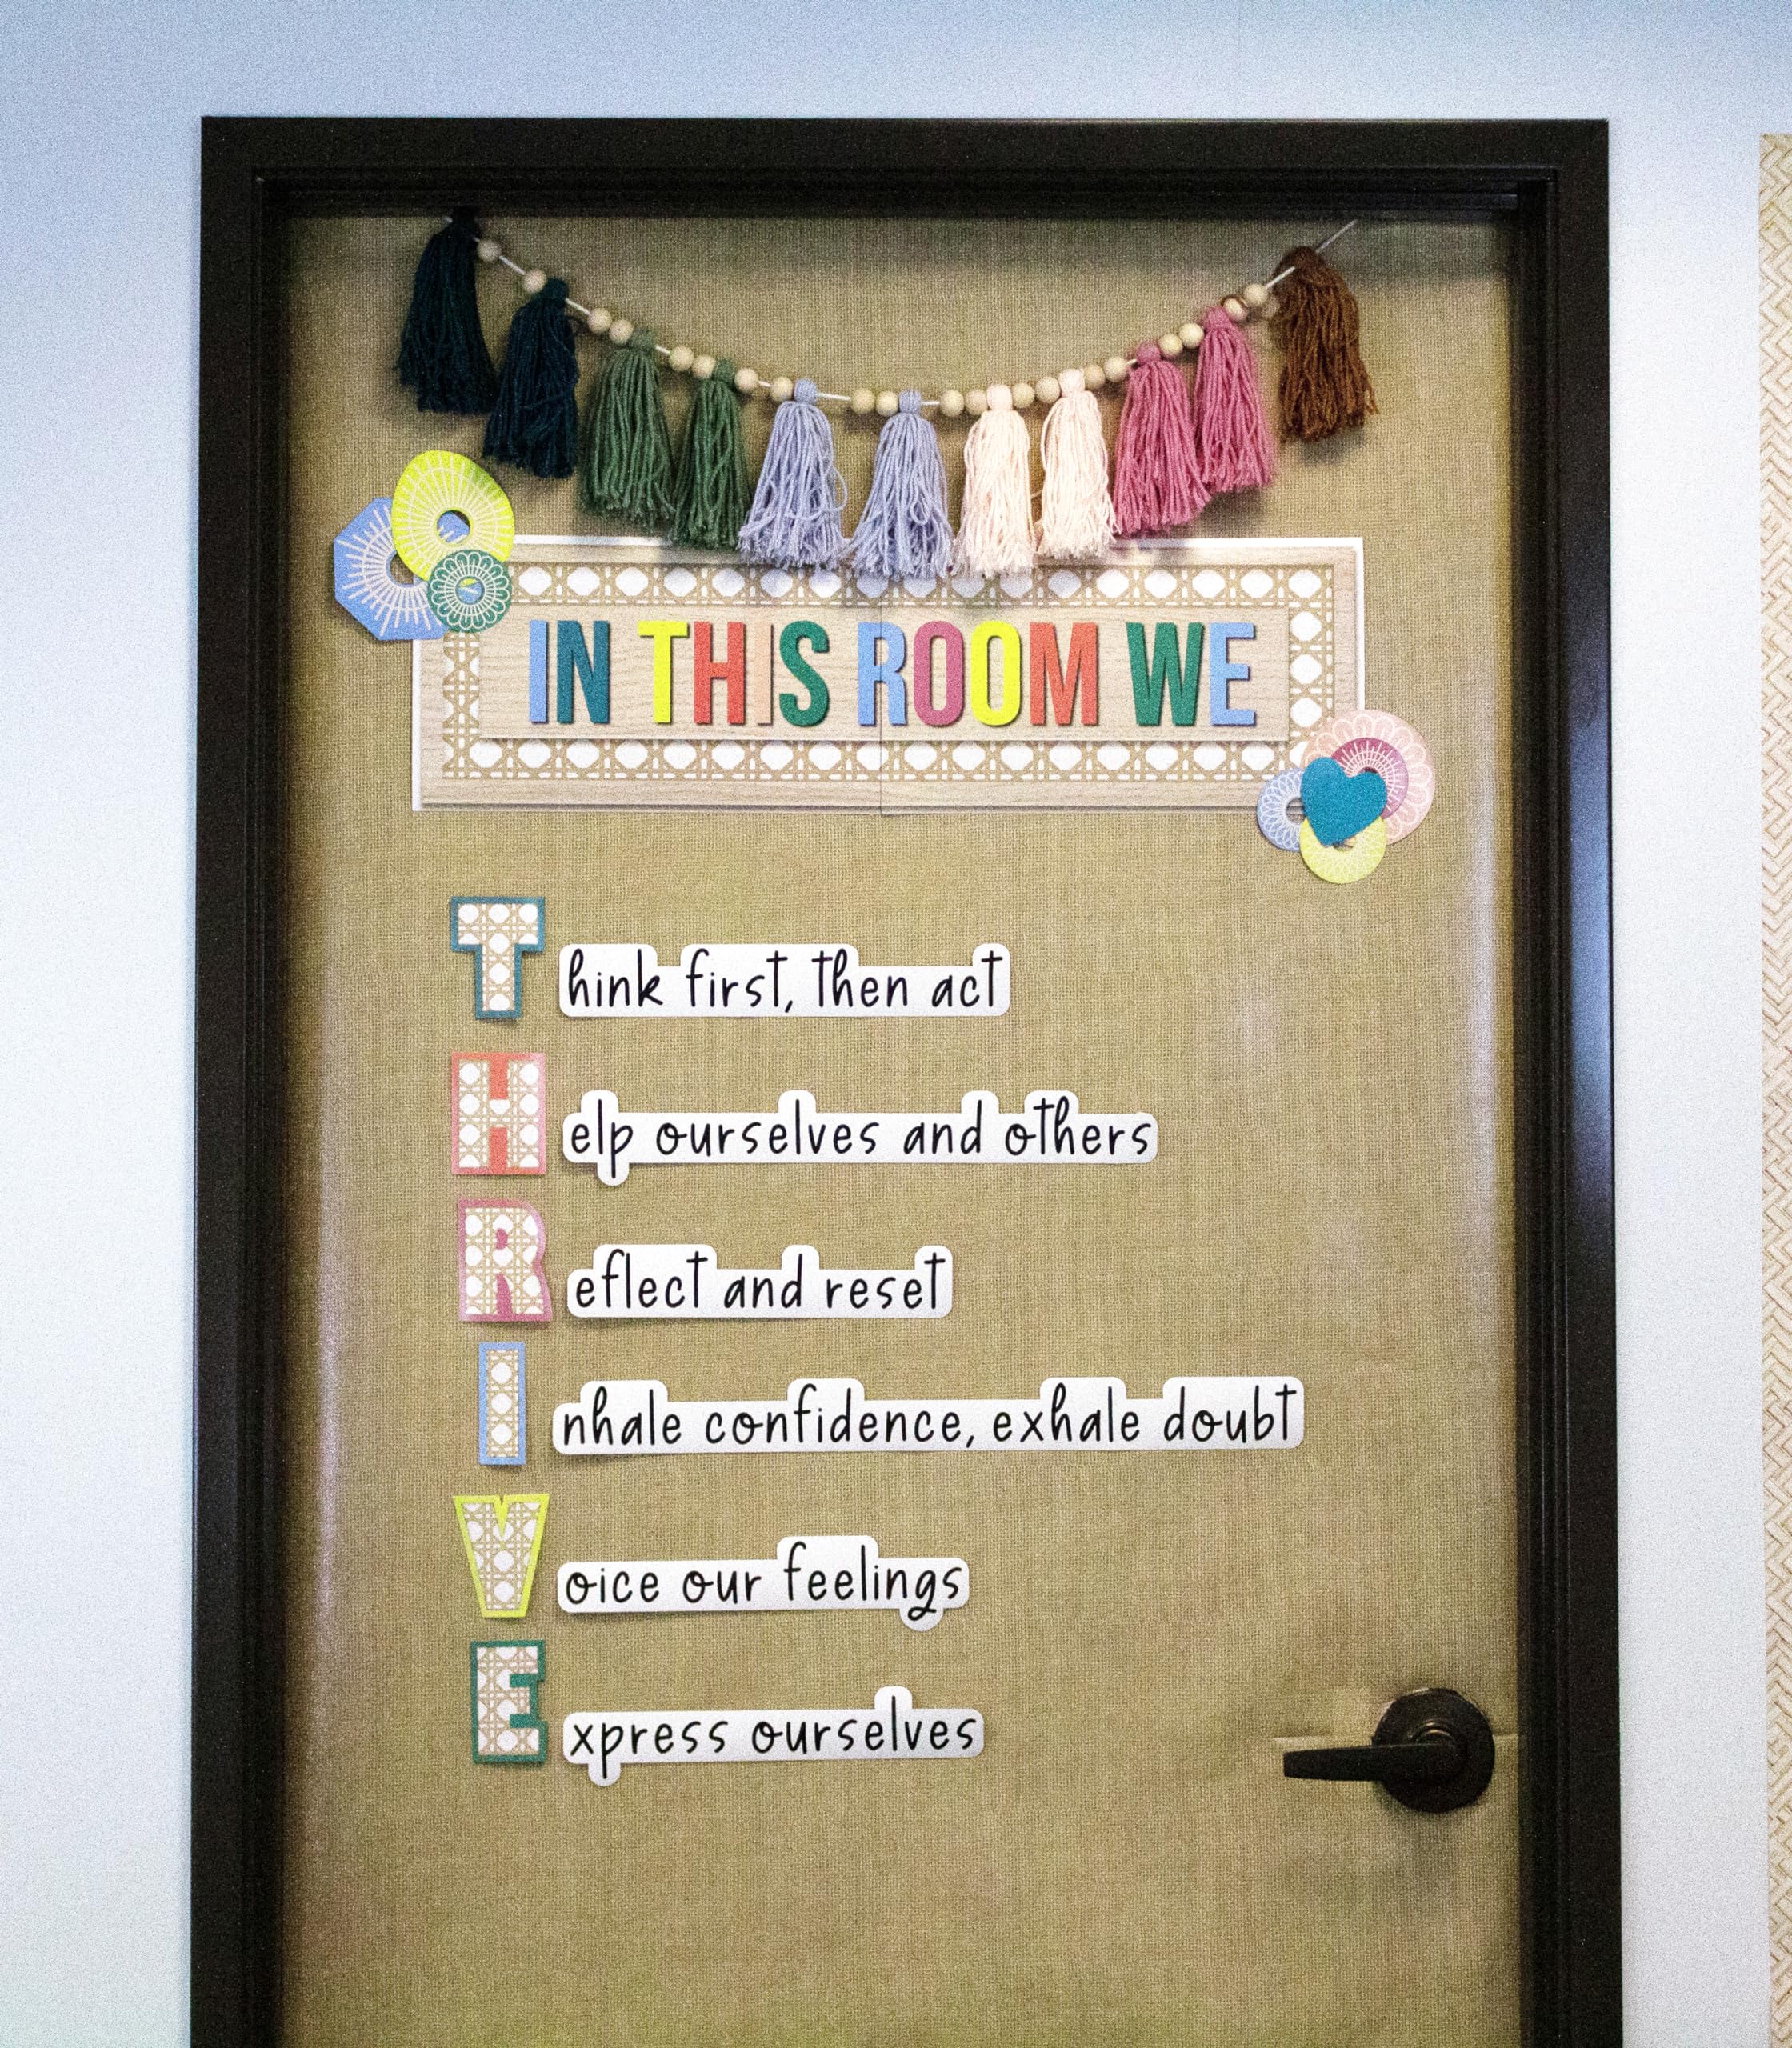 IN THIS ROOM WE
Think first, then act
Help ourselves and others
Reflect and reset
Inhale confidence, exhale doubt
Voice our feelings
Express ourselves